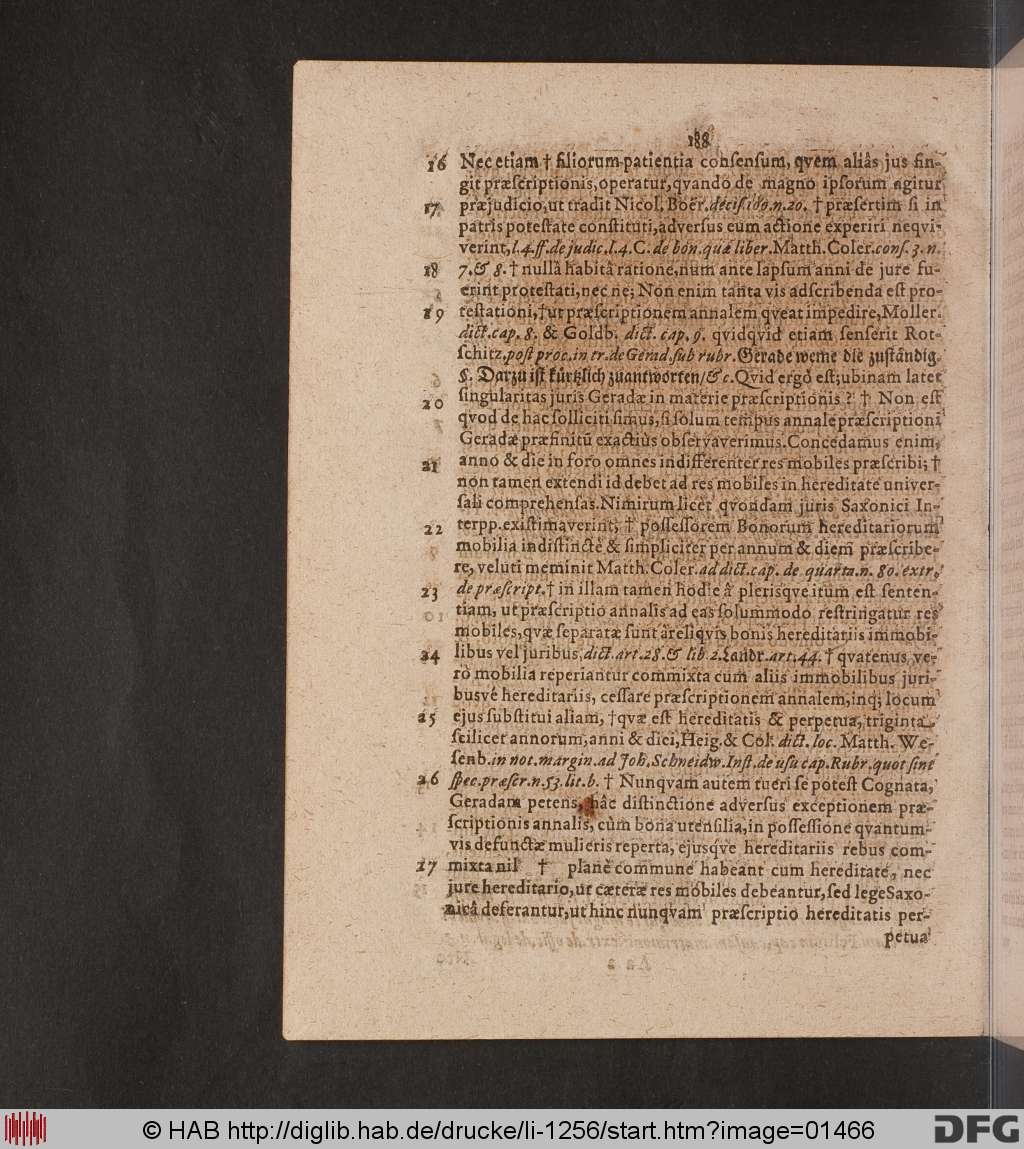 188
16 Nec etiam † filiorum patientia consensum, qvem aliâs jus fin-
git præscriptionis, operatur, qvando de magno ipsorum agitur
17 præjudicio, ut tradit Nicol. Boër. decis. 189. n. 20. † præsertim si in
patris potestate constituti, adversus eum actione experiri neqvi-
verint, l. 4. ff. de judic. l. 4. C. de bon. quæ liber. Matth. Coler. cons. 3. n.
18 7. & 8. † nullâ habitâ ratione, num ante lapsum anni de jure fu-
erint protestati, nec ne; Non enim tanta vis adscribenda est pro-
19 testationi, † ut præscriptionem annalem qveat impedire, Moller.
dict. cap. 8. & Goldb. dict. cap. 9. qvidqvid etiam senserit Rot-
schitz. post proc. in tr. de Gerad. sub rubr. Gerade weme die zuständig.
§. Darzu ist kürtzlich zuantworten / &c. Qvid ergò est; ubinam latet
singularitas juris Geradæ in materie præscriptionis? † Non est
20 qvod de hac solliciti simus, si solum tempus annale præscriptioni
Geradæ præfinitũ exactiùs observaverimus. Concedamus enim,
21 anno & die in foro omnes indifferenter res mobiles præscribi; †
non tamen extendi id debet ad res mobiles in hereditate univer-
sali comprehensas. Nimirum licet qvondam juris Saxonici In-
22 terpp. existimaverint; † possessorem Bonorum hereditariorum
mobilia indistinctè & simpliciter per annum & diem præscribe-
re, veluti meminit Matth. Coler. ad dict. cap. de quarta. n. 80. extr.
23 de præscript. † in illam tamen hodie â plerisqve itum est senten-
tiam, ut præscriptio annalis ad eas solummodo restringatur res
mobiles, qvæ separatæ sunt â reliqvis bonis hereditariis immobi-
24 libus vel juribus, dict. art. 28. & lib. 2. Landr. art. 44. † qvatenus ve-
rò mobilia reperiantur commixta cum aliis immobilibus juri-
busvé hereditariis, cessare præscriptionem annalem, inq; locum
25 ejus substitui aliam, † qvæ est hereditatis & perpetua, triginta
scilicet annorum, anni & diei, Heig. & Col. dict. loc. Matth. We-
senb. in not. margin. ad Joh. Schneidw. Inst. de usu cap. Rubr. quot sint
26 spec. præscr. n. 53. lit. b. † Nunqvam autem tueri se potest Cognata,
Geradam petens, hâc distinctione adversus exceptionem præ-
scriptionis annalis, cùm bona utensilia, in possessione qvantum-
vis defunctæ mulieris reperta, ejusqve hereditariis rebus com-
27 mixta nil † planè commune habeant cum hereditate, nec
jure hereditario, ut cæteræ res mobiles debeantur, sed lege Saxo-
nicâ deferantur, ut hinc nunqvam præscriptio hereditatis per-
petua
© HAB http://diglib.hab.de/drucke/li-1256/start.htm?image=01466
DFG